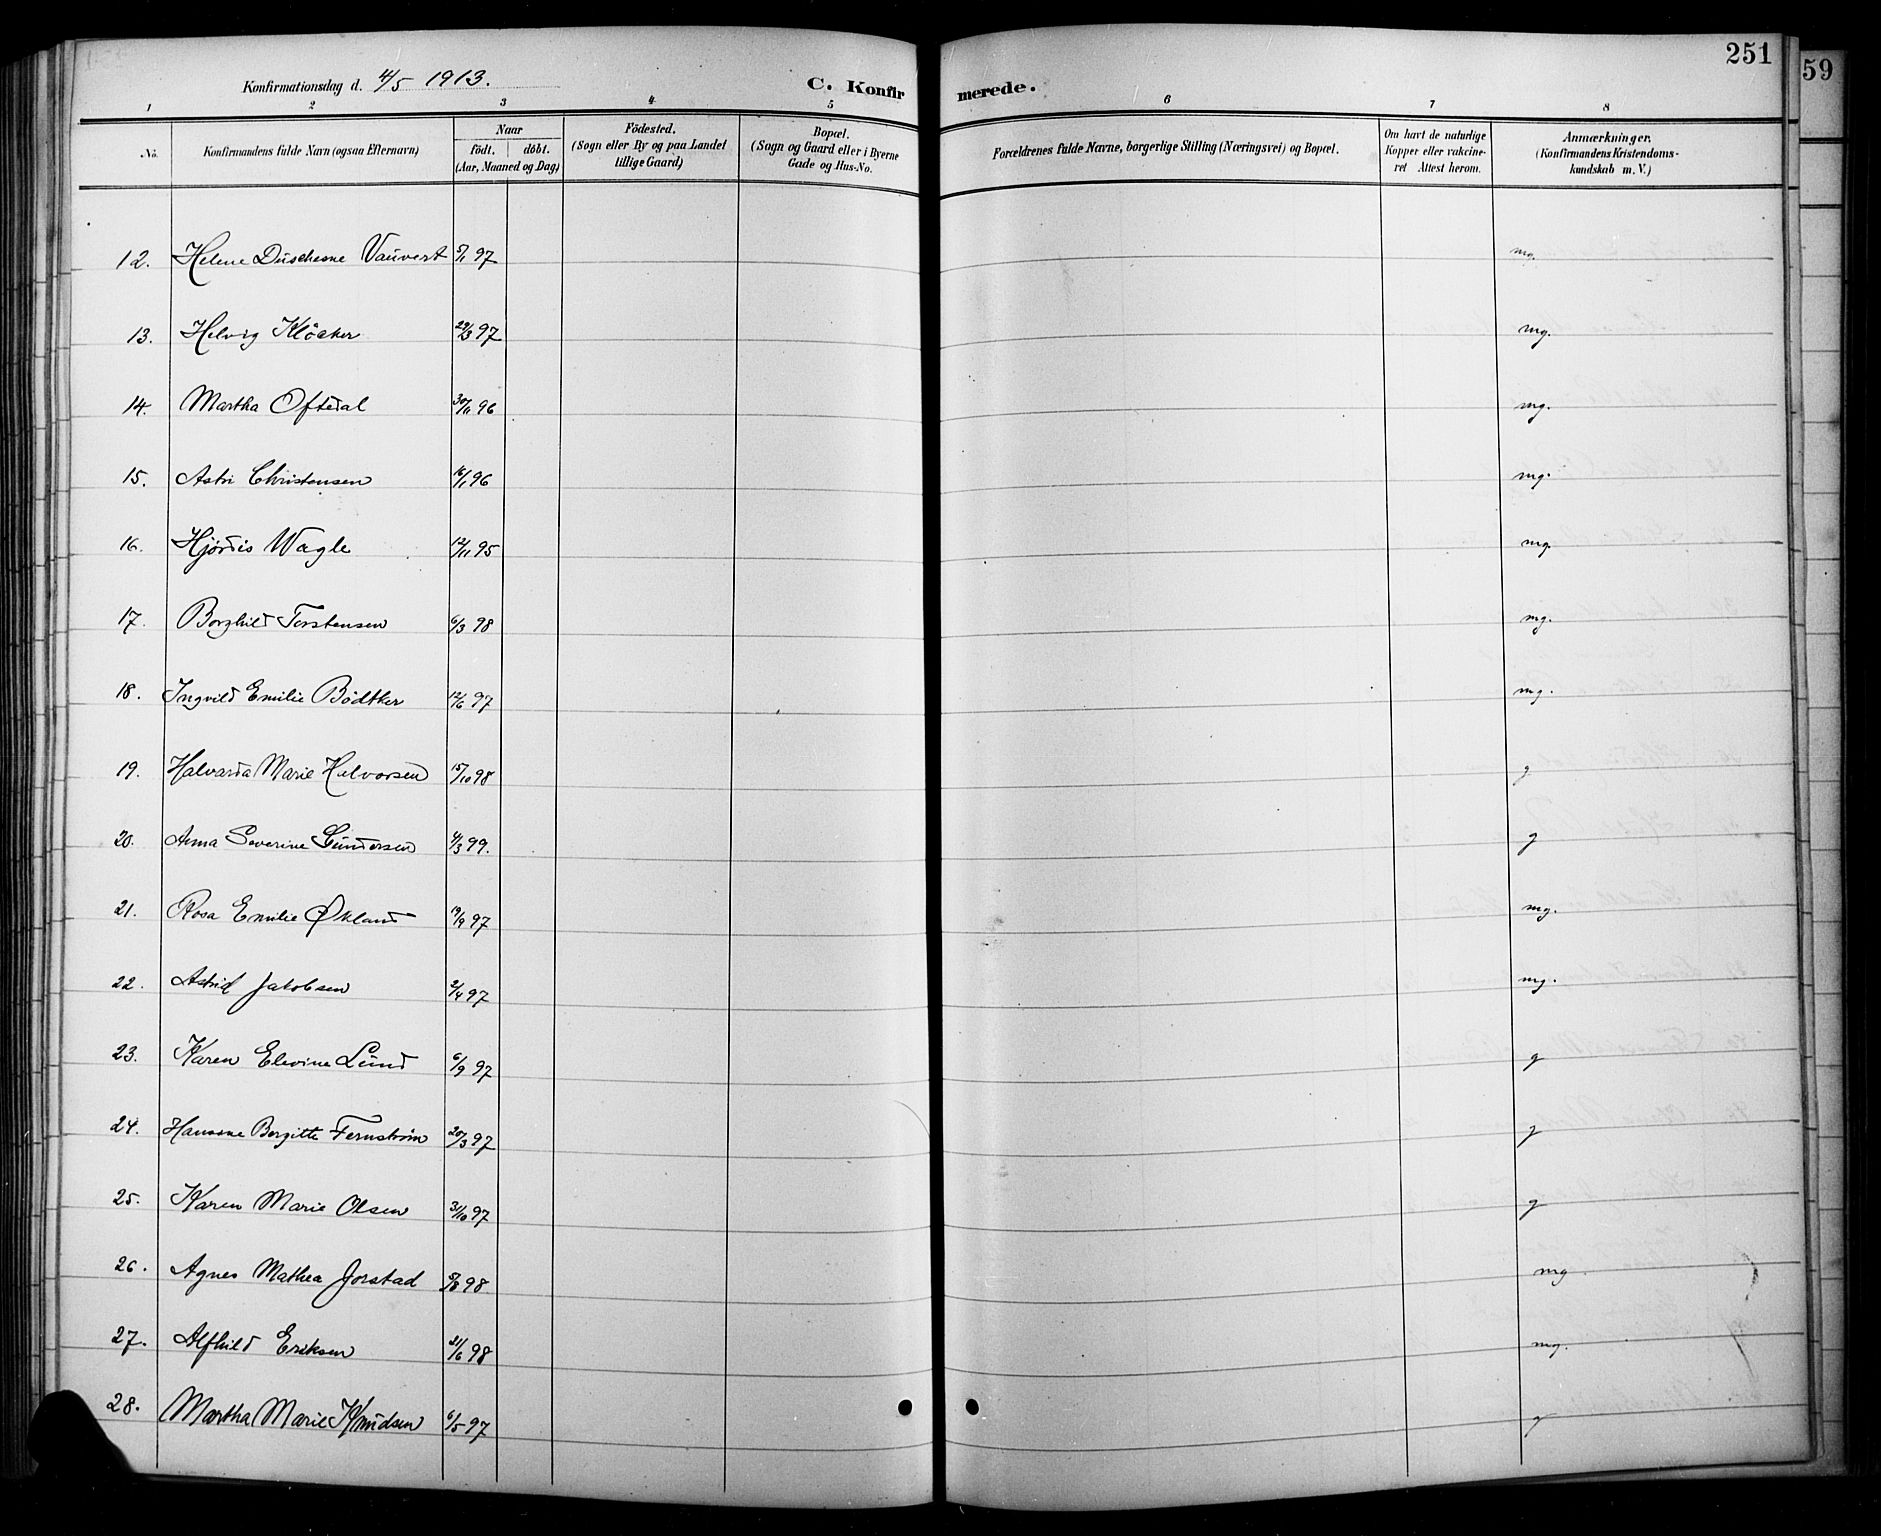 251
59
Konfirmationsdag d. 4/5 1913.
C. Konfirmerede.
1 2 3 4 5 6 7 8
No.
Konfirmandens fulde Navn (ogsaa Efternavn)
Naar
födt. döbt.
(Aar, Maaned og Dag)
Födested.
(Sogn eller By og paa Landet
tillige Gaard)
Bopæl.
(Sogn og Gaard eller i Byerne
Gade og Hus-No.
Forældrenes fulde Navne, borgerlige Stilling (Næringsvei) og Bopæl.
Om havt de naturlige
Kopper eller vakcine-
ret Attest herom.
Anmærkninger.
(Konfirmandens Kristendoms-
kundskab m. V.)
12. Helene Duschesne Vauvert 5/1 97 mg.
13. Helvig Klöcker 29/3 97 mg.
14. Martha Oftedal 30/11 96 mg.
15. Astri Christensen 16/1 96 mg.
16. Hjørdis Wagle 12/11 95 mg.
17. Borghild Torstensen 6/3 98 mg.
18. Ingvild Emilie Bödtker 12/6 97 mg.
19. Halvarda Marie Halvorsen 15/10 98 g
20. Anna Severine Gundersen 4/3 99. g
21. Rosa Emilie Økland 19/9 97 mg.
22. Astrid Jakobsen 2/4 97 mg.
23. Karen Elevine Lund 6/9 97 g
24. Hansine Bergitte Fernström 20/3 97 g
25. Karen Marie Olsen 31/10 97 g
26. Agnes Mathea Jorstad 5/8 98 mg.
27. Alfhild Eriksen 21/6 98 mg.
28. Martha Marie Knudsen 6/5 97 g